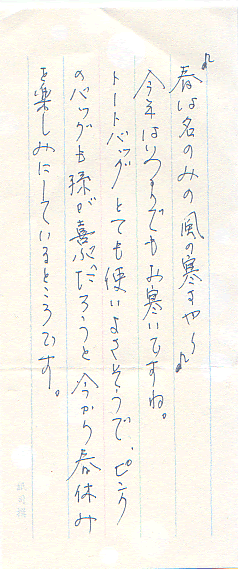 ♪春は名のみの風の寒さや〜♪
今年はいつまでもお寒いですね。
トートバッグ とても使いよさそうで、ピンク
のバッグも孫が喜ぶだろうと今から春休み
を楽しみにしているところです。